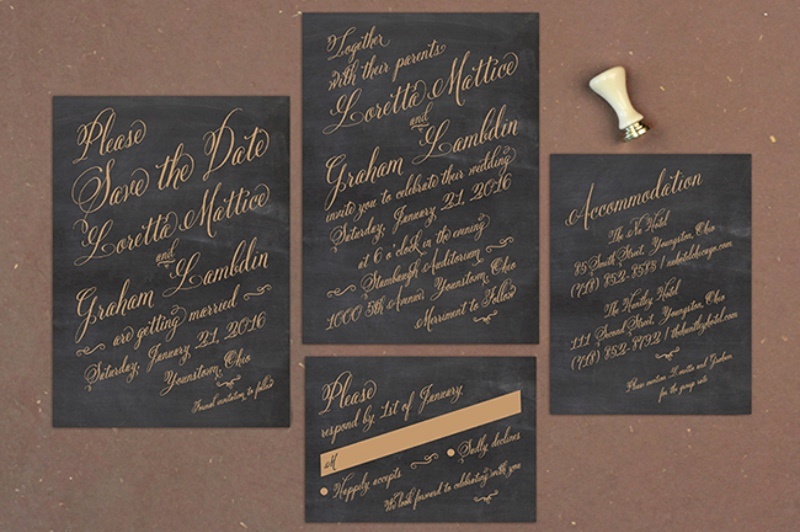 Please
Save the Date
Loretta Mattice
and
Graham Lambdin
are getting married
Saturday, January 21, 2016
Youngstown, Ohio
Formal invitation to follow
Together
with their parents
Loretta Mattice
and
Graham Lambdin
invite you to celebrate their wedding
Saturday, January 21, 2016
at 6 o'clock in the evening
Stambaugh Auditorium
1000 5th Avenue Youngstown, Ohio
Merriment to Follow
Please
respond by 1st of January
M
Happily accepts
Sadly declines
We look forward to celebrating with you
Accommodation
The Hotel
85 Smith Street, Youngston, Ohio
(718) 852-8585 /
The Huntley Hotel
111 Second Street, Youngston, Ohio
(718) 852-8792 / thehuntleyhotel.com
Please mention Loretta and Graham
for the group rate